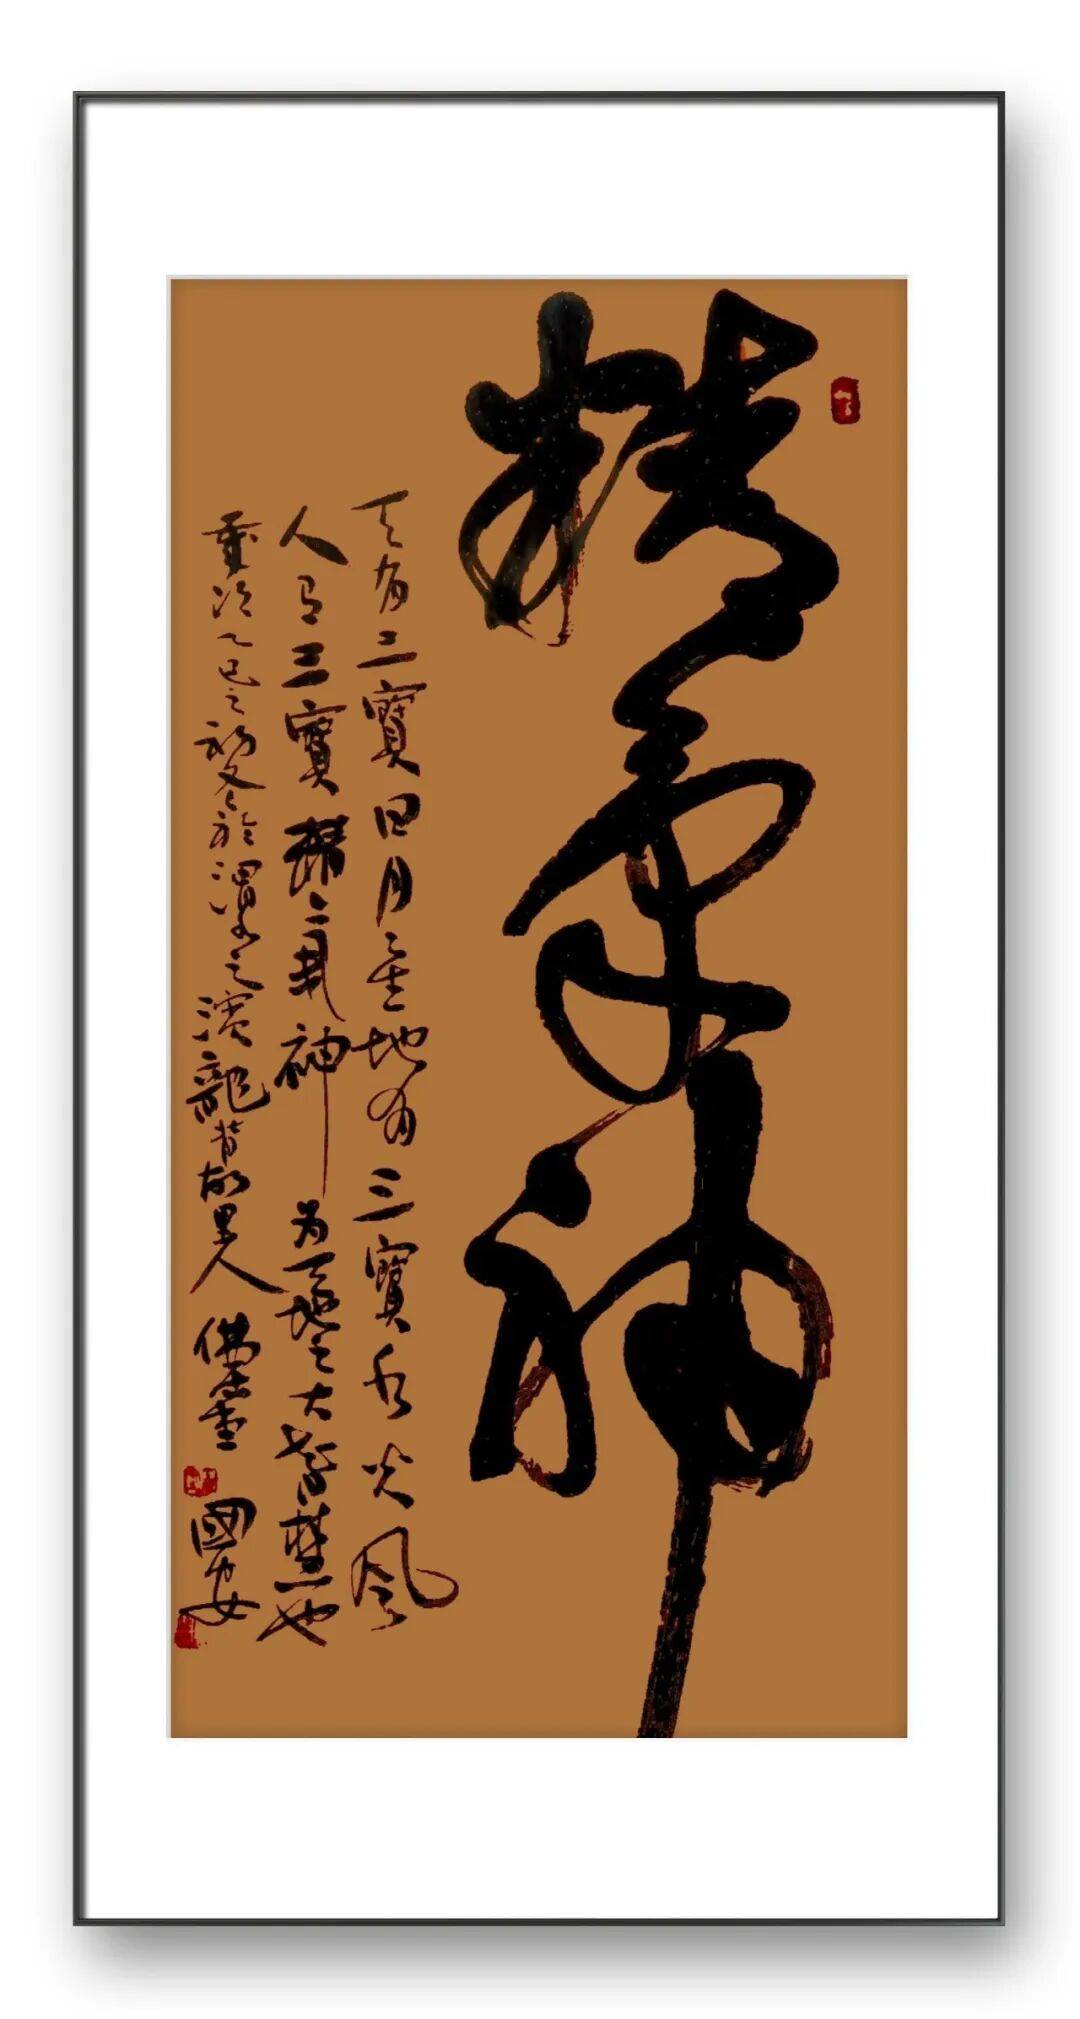 精氣神
天有三寶日月星地有三寶水火風
人有三寶精氣神 为天地之大智慧也
歲次乙巳之初冬於渭水之濱龍背故里人 國安